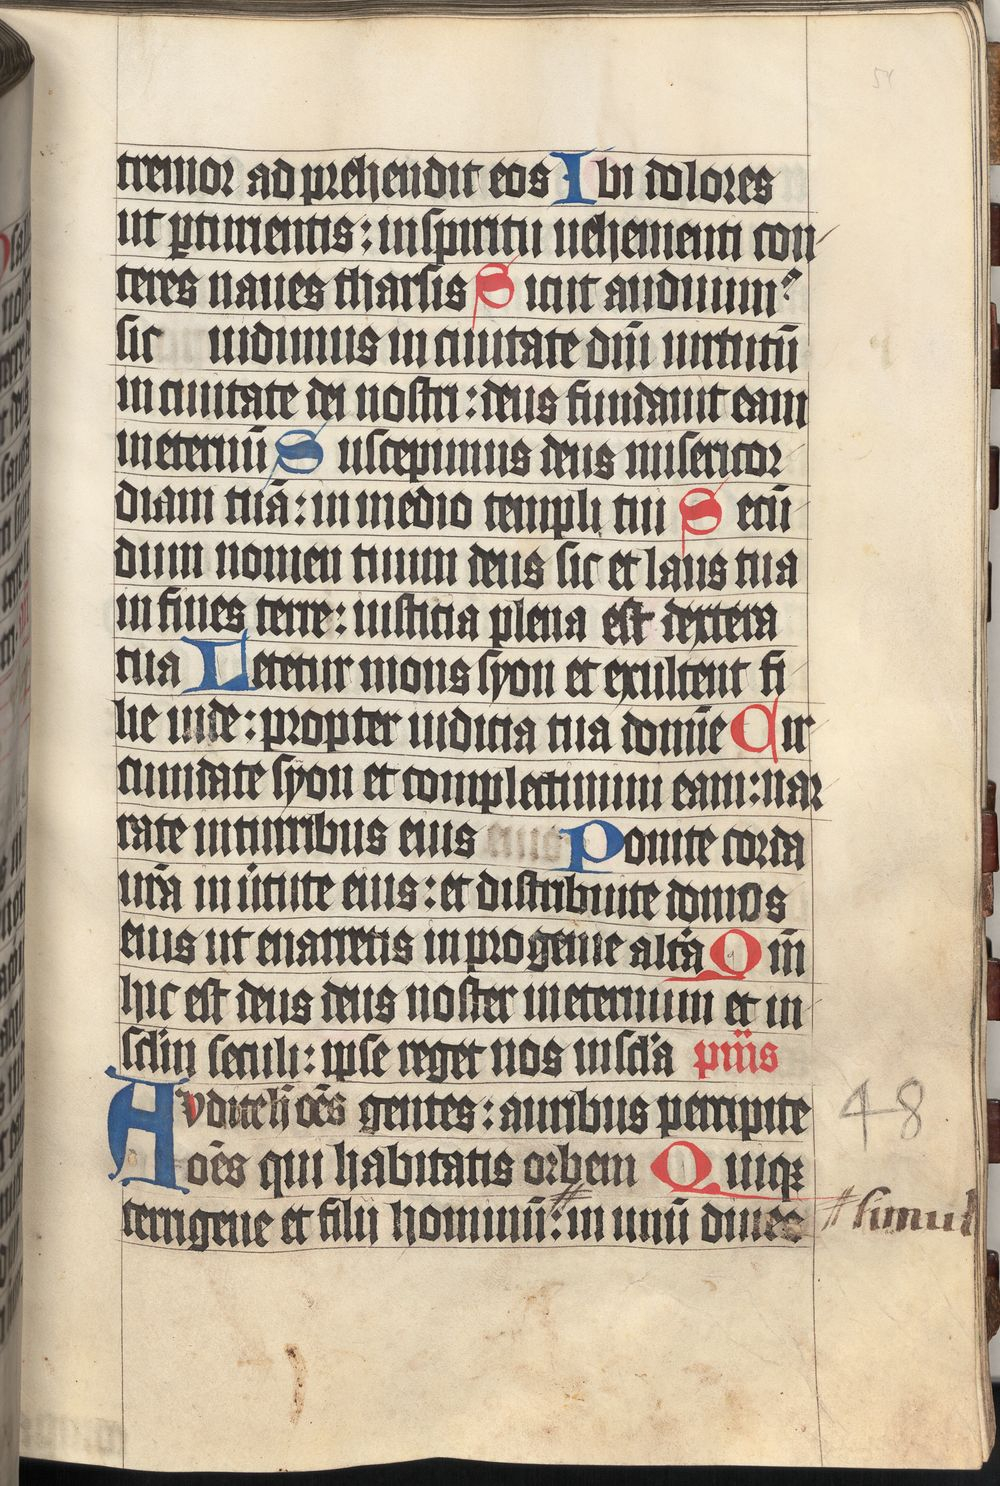 tremor adprehendit eos Ibi dolores
ut ꝑturientis: inspiritu uehementi con
teres naues tharsis Sicut audiuimꝰ
sic uidimus in ciuitate dn̄i uirtutū
in ciuitate dei nostri: deus fundauit eam
ineternū Suscepimus deus misericor
diam tuā: in medio templi tui Secū
dum nomen tuum deus sic et laus tua
in fines terre: iusticia plena est dextera
tua Letetur mons syon et exultent fi
lie iude: propter iudicia tua domīe Cir
cumdate syon et complectimini eam: nar
rate inturribus eius Ponite corda
ur̄a in ūtute eius: et distribuite domos
eius ut enarretis in progenie altā Qm̄
hic est deus deus noster ineternum et in
sclm̄ seculi: ipse reget nos inscl̄a pm̄s
Auditeh̄ oēs gentes: auribus percipite
oēs qui habitatis orbem Quiqꝫ
terrigene et filii hominū: in unū diues
simul
48
51